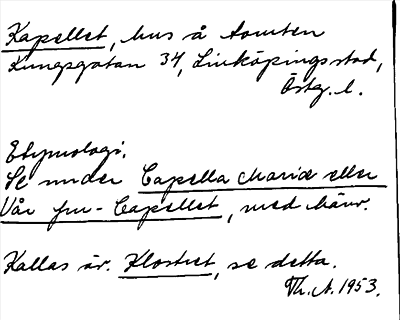 Kapellet, hus å tomten
Kungsgatan 34, Linköpings stad,
Östg. l.
Etymologi.
Se under Capella Mariæ eller
Vår fru-Capellet, med hänv.
Kallas äv. Klostret, se detta.
Th. A. 1953.